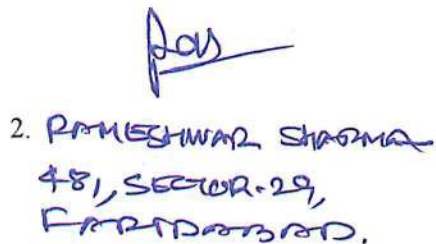 2. RAMESHWAR SHARMA
481, SECTOR-29,
FARIDABAD.